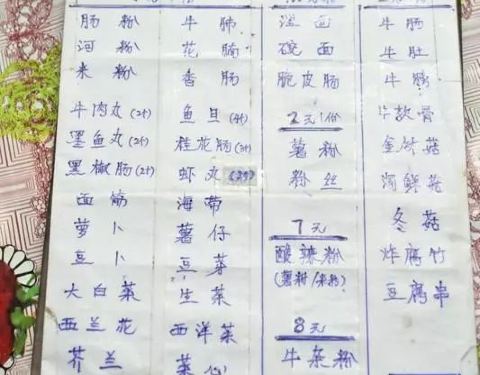 肠粉
河粉
米粉
牛肉丸(2个)
墨鱼丸(2个)
黑椒肠(2个)
面筋
萝卜
豆卜
大白菜
西兰花
芥兰
牛肺
花腩
香肠
鱼旦(4个)
桂花肠(3个)
虾丸
海带
薯仔
豆芽
生菜
西洋菜
菜心
湿面
碗面
脆皮肠
2元/份
薯粉
粉丝
7元
酸辣粉
(薯粉/米粉)
8元
牛杂粉
牛肠
牛肚
牛膀
牛软骨
金针菇
海鲜菇
冬菇
炸腐竹
豆腐串